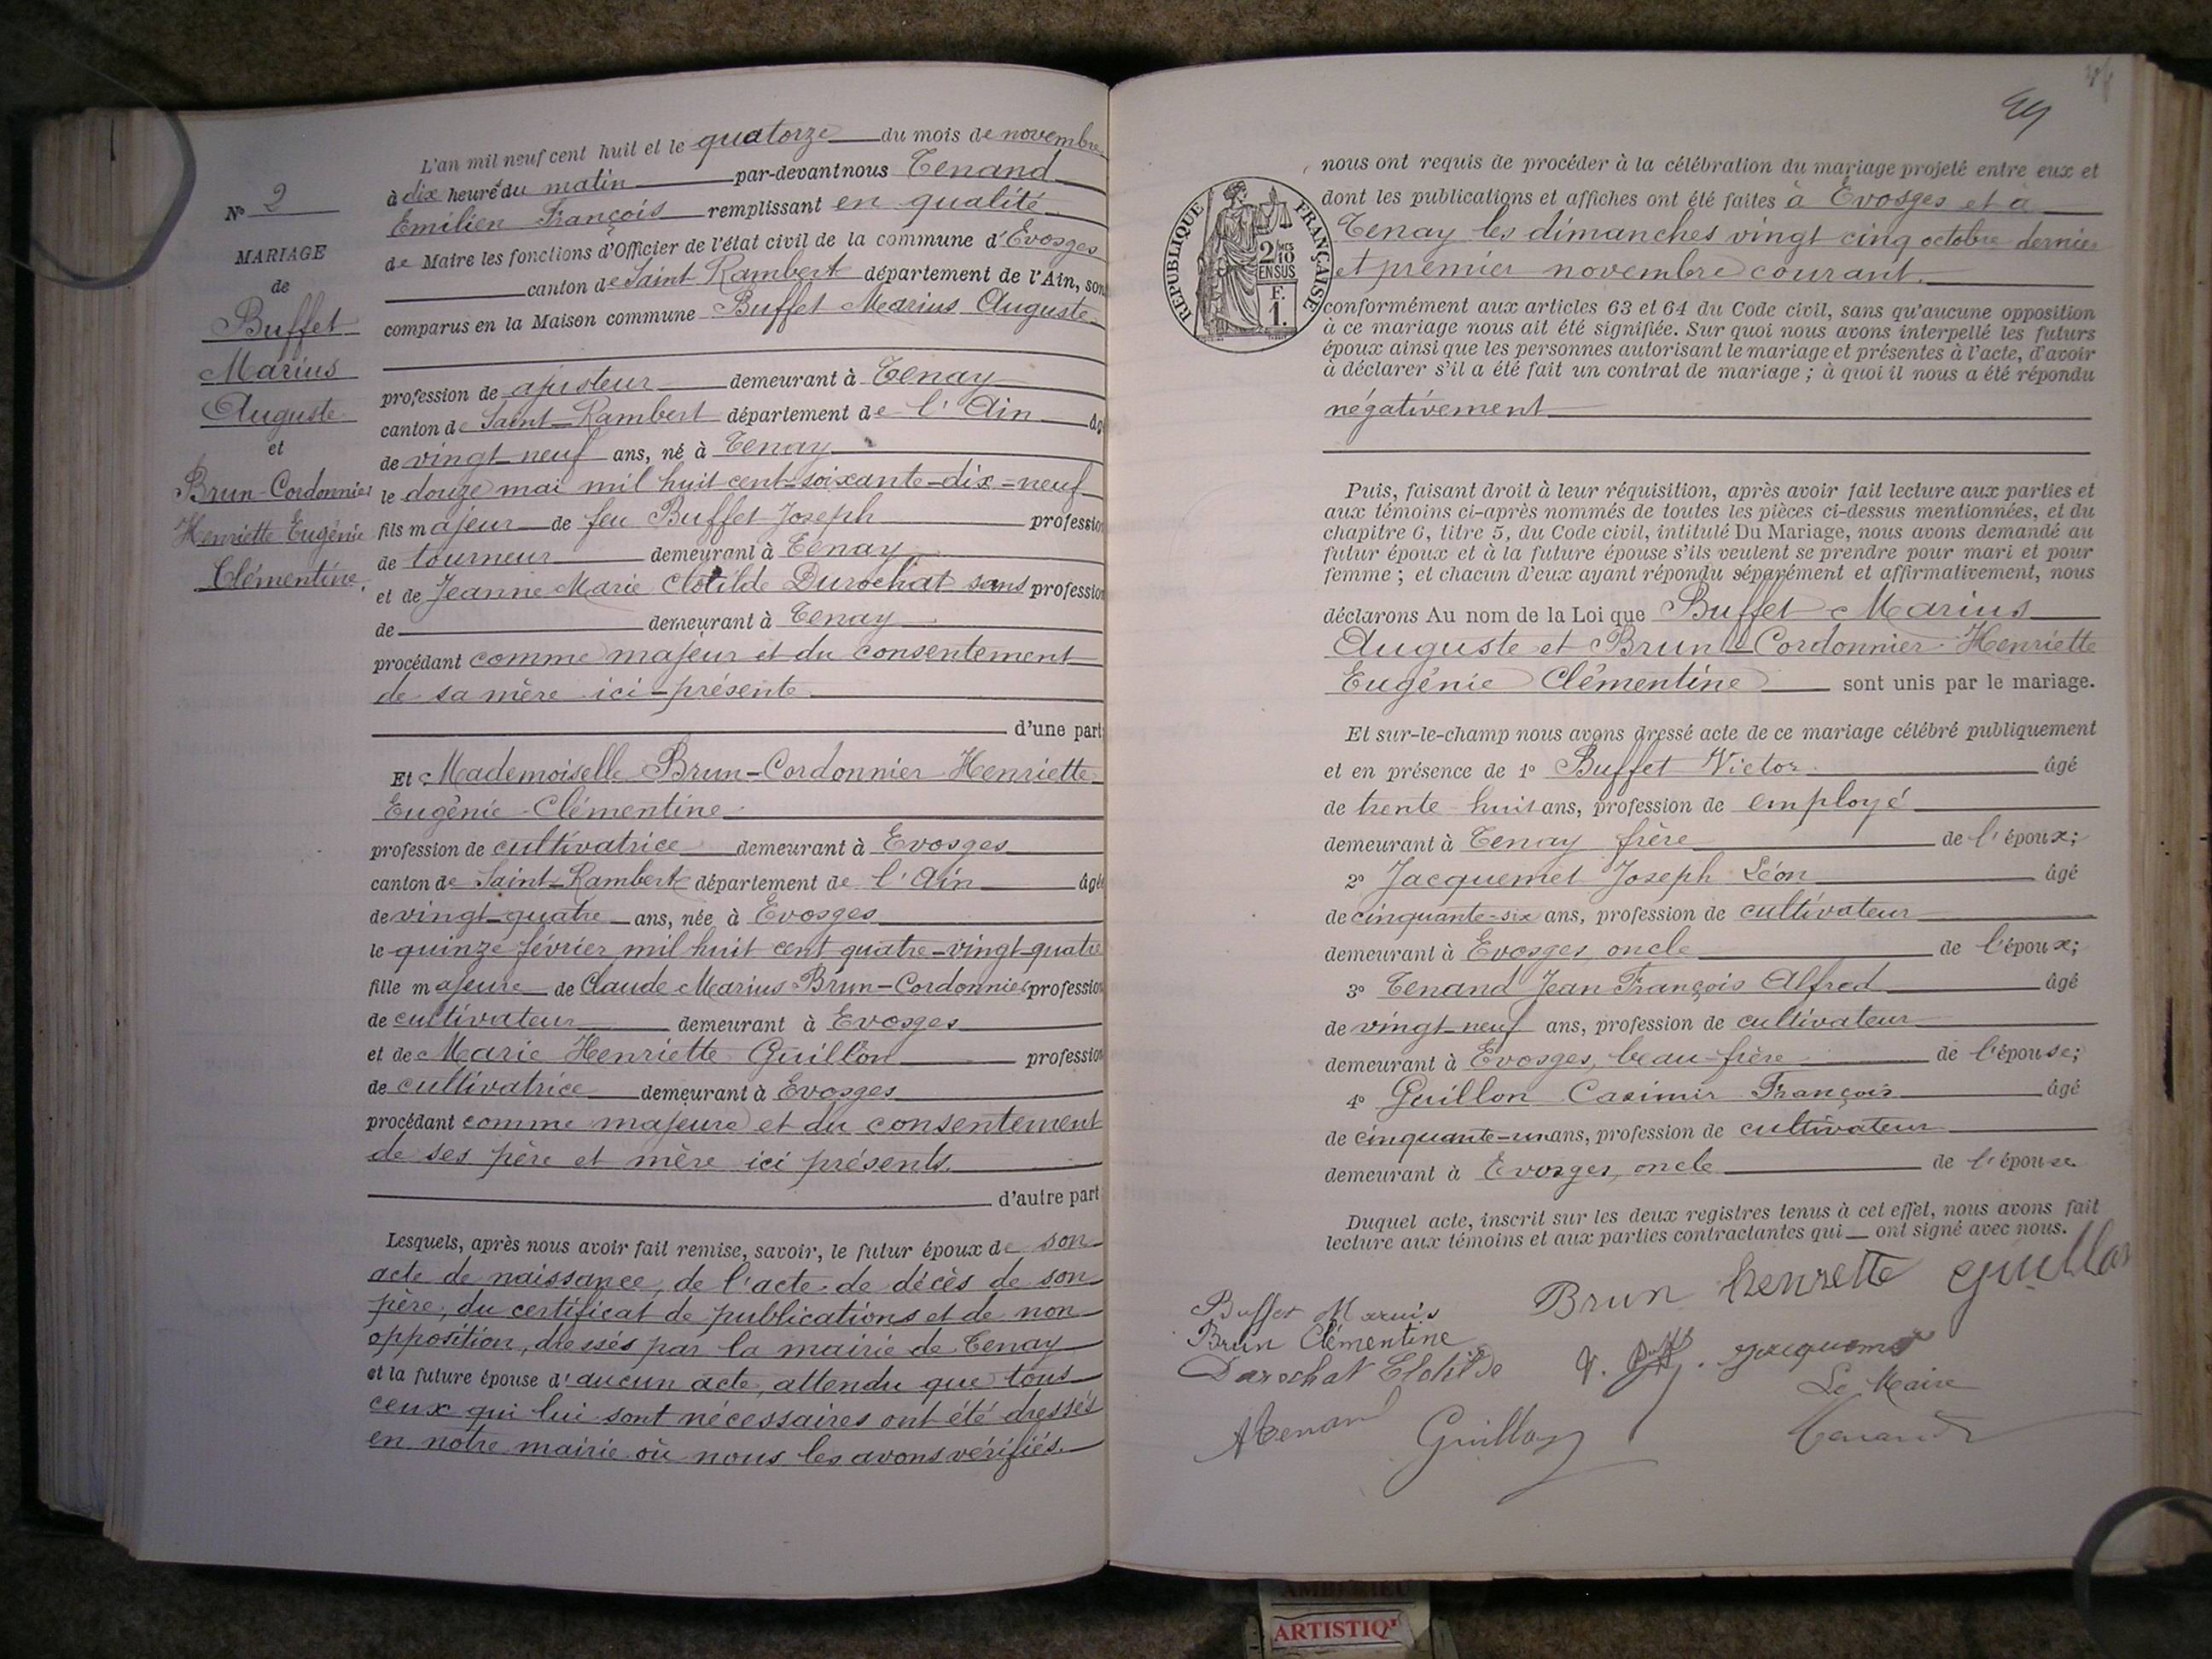 N° 2
MARIAGE
de
Buffet
Marius
Auguste
et
Brun-Cordonnier
Henriette Eugénie
Clémentine.
L'an mil neuf cent huit et le quatorze du mois de novembre
à dix heure du matin par-devant nous Tenand
Emilien François remplissant en qualité
de Maire les fonctions d'Officier de l'état civil de la commune d'Evosges
canton de Saint Rambert département de l'Ain, son
comparus en la Maison commune Buffet Marius Auguste
profession de ajusteur demeurant à Tenay
canton de Saint-Rambert département de l'Ain âgé
de vingt-neuf ans, né à Tenay
le douze mai mil huit cent-soixante-dix-neuf
fils majeur de feu Buffet Joseph profession
de tourneur demeurant à Tenay
et de Jeanne Marie Clotilde Durochat sans profession
de demeurant à Tenay
procédant comme majeur et du consentement
de sa mère ici-présente
d'une part
Et Mademoiselle Brun-Cordonnier Henriette
Eugénie Clémentine
profession de cultivatrice demeurant à Evosges
canton de Saint-Rambert département de l'Ain âgée
de vingt-quatre ans, née à Evosges
le quinze février mil huit cent quatre-vingt-quatre
fille majeure de Claude Marius Brun-Cordonnier profession
de cultivateur demeurant à Evosges
et de Marie Henriette Guillon profession
de cultivatrice demeurant à Evosges
procédant comme majeure et du consentement
de ses père et mère ici présents.
d'autre part
Lesquels, après nous avoir fait remise, savoir, le futur époux de son
acte de naissance, de l'acte de décès de son
père, du certificat de publications et de non
opposition, dressés par la mairie de Tenay
et la future épouse d'aucun acte, attendu que tous
ceux qui lui sont nécessaires ont été dressés
en notre mairie où nous les avons vérifiés.
nous ont requis de procéder à la célébration du mariage projeté entre eux et
dont les publications et affiches ont été faites à Evosges et à
Tenay les dimanches vingt cinq octobre dernier
et premier novembre courant.
RÉPUBLIQUE FRANÇAISE
2 MES
10
EN SUS
F.
1.
conformément aux articles 63 et 64 du Code civil, sans qu'aucune opposition
à ce mariage nous ait été signifiée. Sur quoi nous avons interpellé les futurs
époux ainsi que les personnes autorisant le mariage et présentes à l'acte, d'avoir
à déclarer s'il a été fait un contrat de mariage ; à quoi il nous a été répondu
négativement
Puis, faisant droit à leur réquisition, après avoir fait lecture aux parties et
aux témoins ci-après nommés de toutes les pièces ci-dessus mentionnées, et du
chapitre 6, titre 5, du Code civil, intitulé Du Mariage, nous avons demandé au
futur époux et à la future épouse s'ils veulent se prendre pour mari et pour
femme ; et chacun d'eux ayant répondu séparément et affirmativement, nous
déclarons Au nom de la Loi que Buffet Marius
Auguste et Brun-Cordonnier Henriette
Eugénie Clémentine sont unis par le mariage.
Et sur-le-champ nous avons dressé acte de ce mariage célébré publiquement
et en présence de 1° Buffet Victor âgé
de trente huit ans, profession de employé
demeurant à Tenay frère de l'époux;
2° Jacquemet Joseph Léon âgé
de cinquante-six ans, profession de cultivateur
demeurant à Evosges, oncle de l'époux;
3° Tenand Jean François Alfred âgé
de vingt-neuf ans, profession de cultivateur
demeurant à Evosges, beau-frère de l'épouse;
4° Guillon Casimir François âgé
de cinquante-un ans, profession de cultivateur
demeurant à Evosges, oncle de l'épouse
Duquel acte, inscrit sur les deux registres tenus à cet effet, nous avons fait
lecture aux témoins et aux parties contractantes qui ont signé avec nous.
Brun henrette Guillon
Buffet Marius
Brun Clémentine
Durochat Clotilde
Jacquemet
Le Maire
ATenand
Guillon
Tenand
AMBERIEU
ARTISTIQ